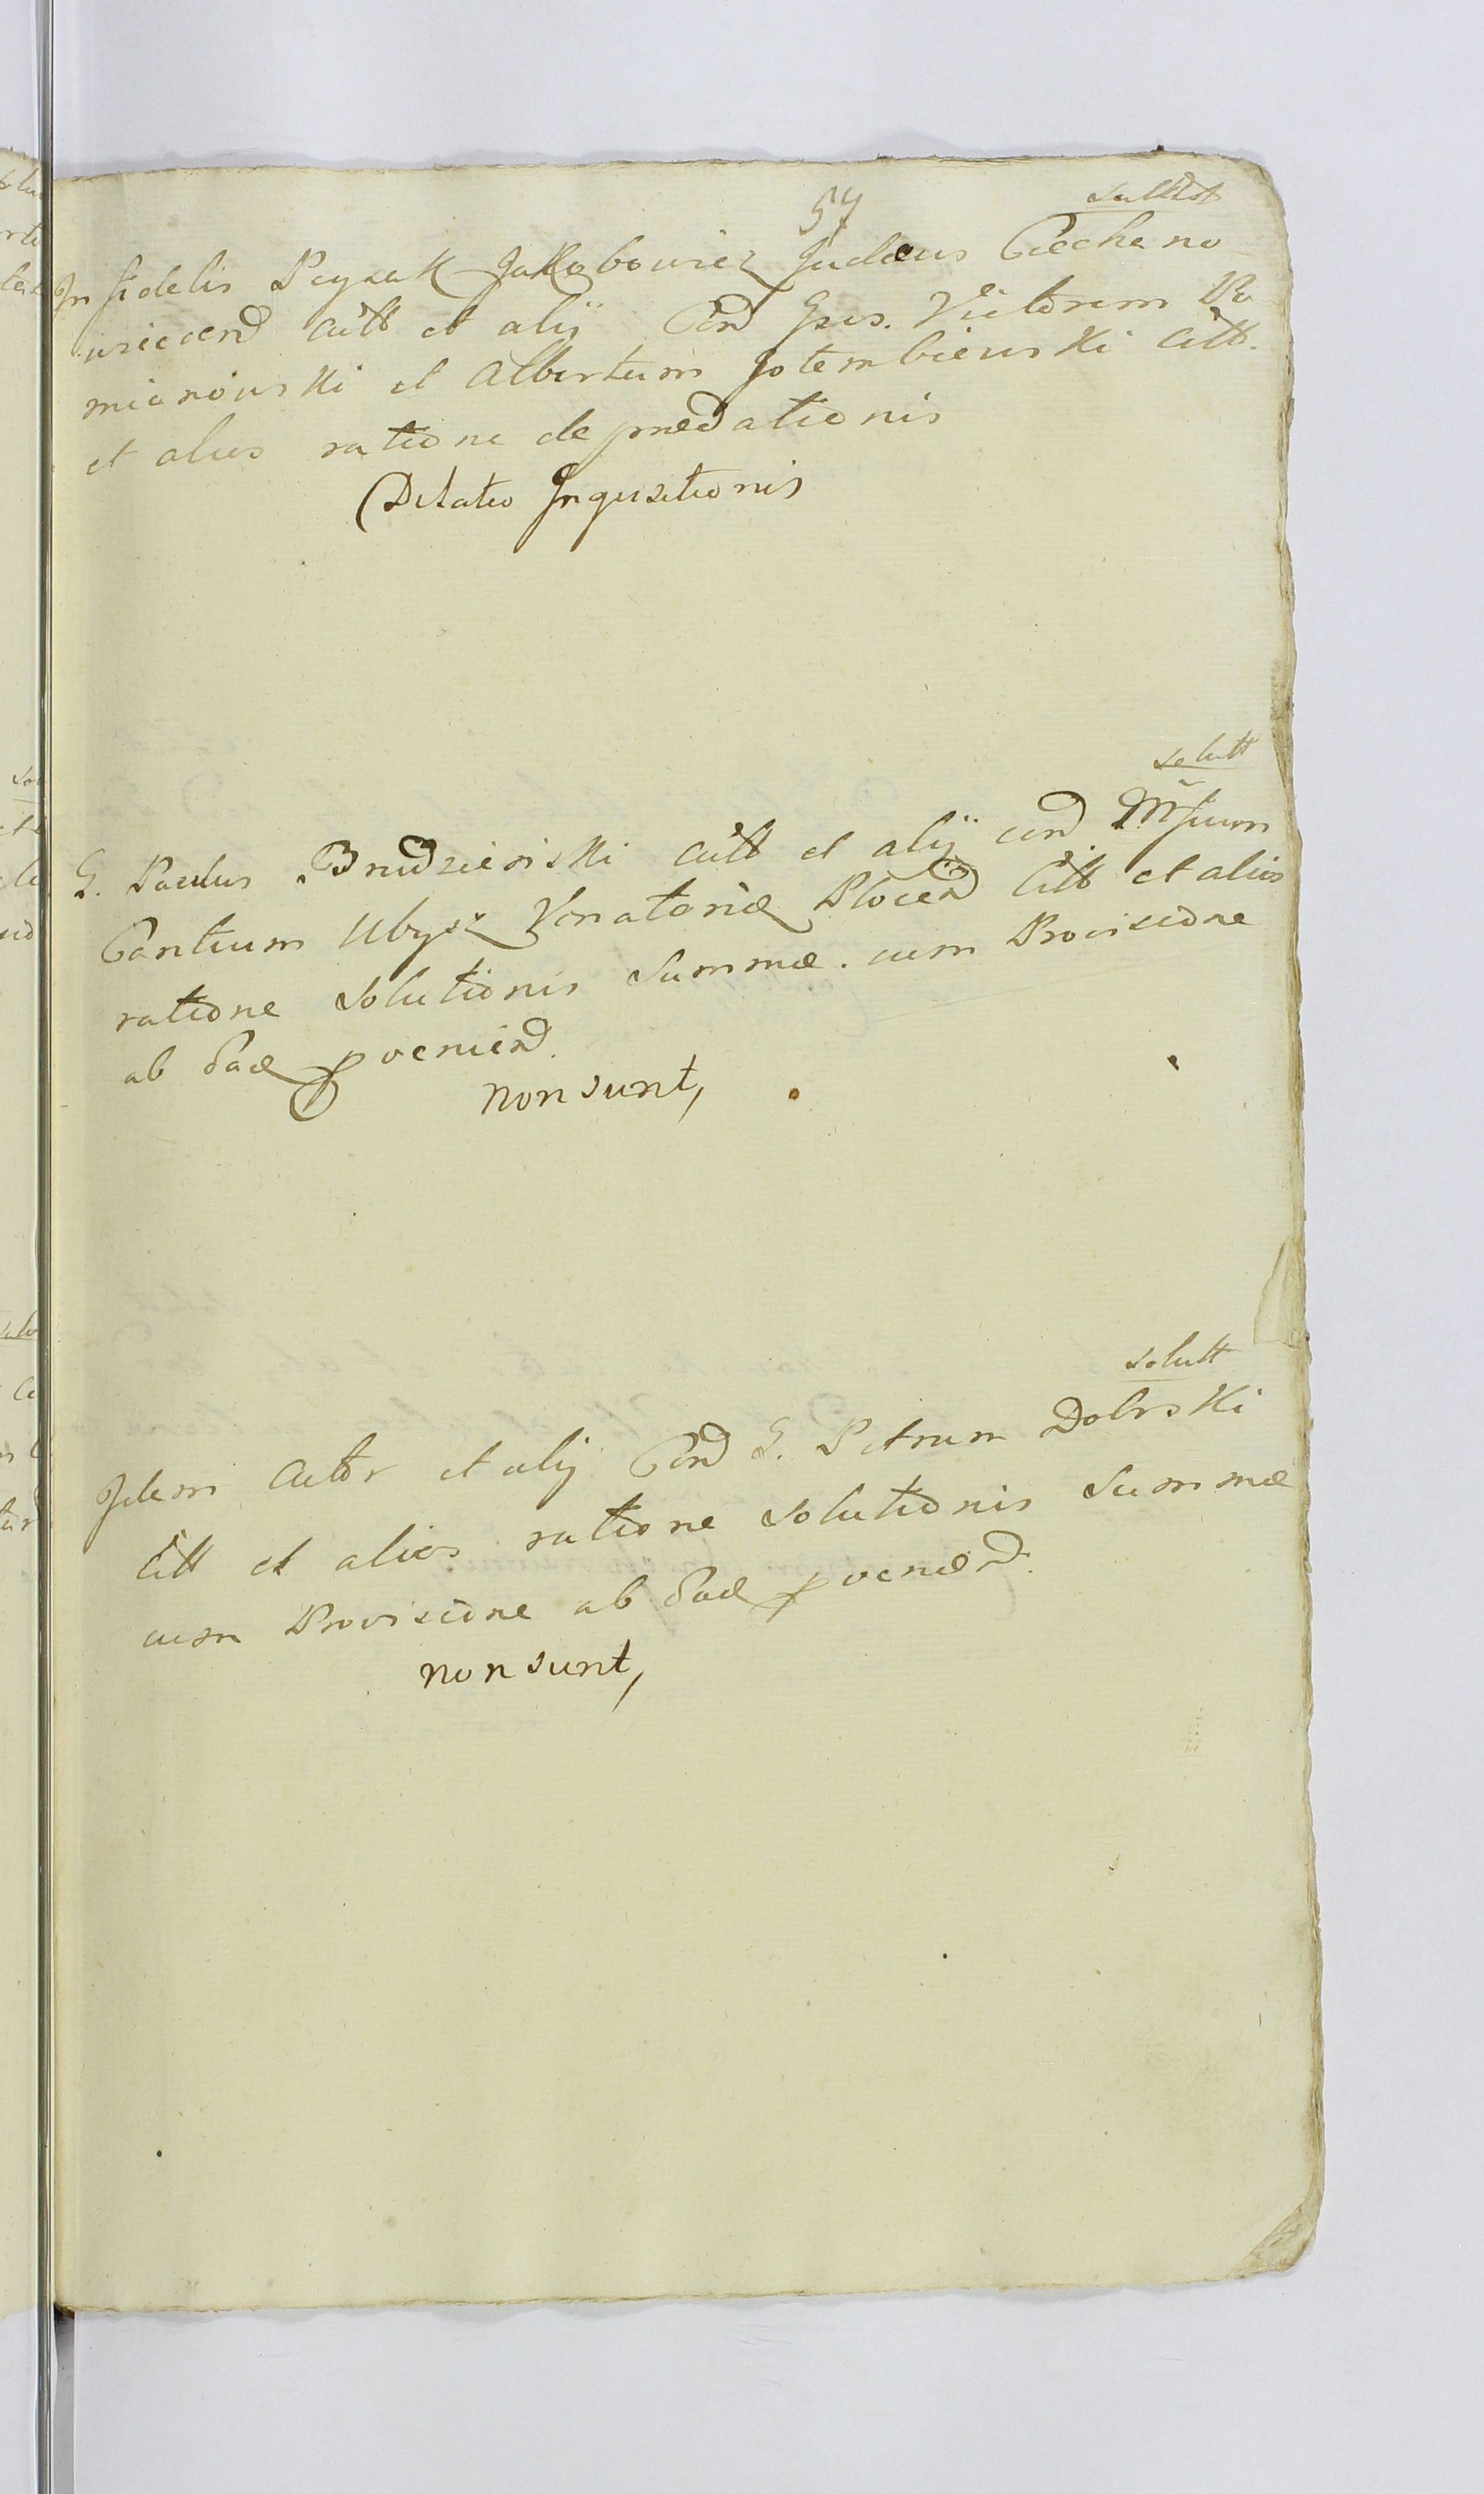 57
solutt
Infidelis Peysak Jakobowicz Judæus Ciechano
wiecen̄ Citt et alij Con̄ Gsus. Victorem Do
mianowski et Albertum Gotembiewski Citt.
et alios ratione deprædationis
Dilatio Inquisitionis
solutt
G. Paulus Brudzieński Citt et alij con̄ Mfcum
Cantium Ubysz Venatorię Plocen̄ Citt et alios
ratione solutionis Summæ. cum Provisione
ab eade pvenien̄.
non sunt,
solutt
Idem Actor et alij Con̄ G. Petrum Dobrski
Citt et alios ratione solutionis Summæ
cum Provisione ab eade pvenien̄.
non sunt,